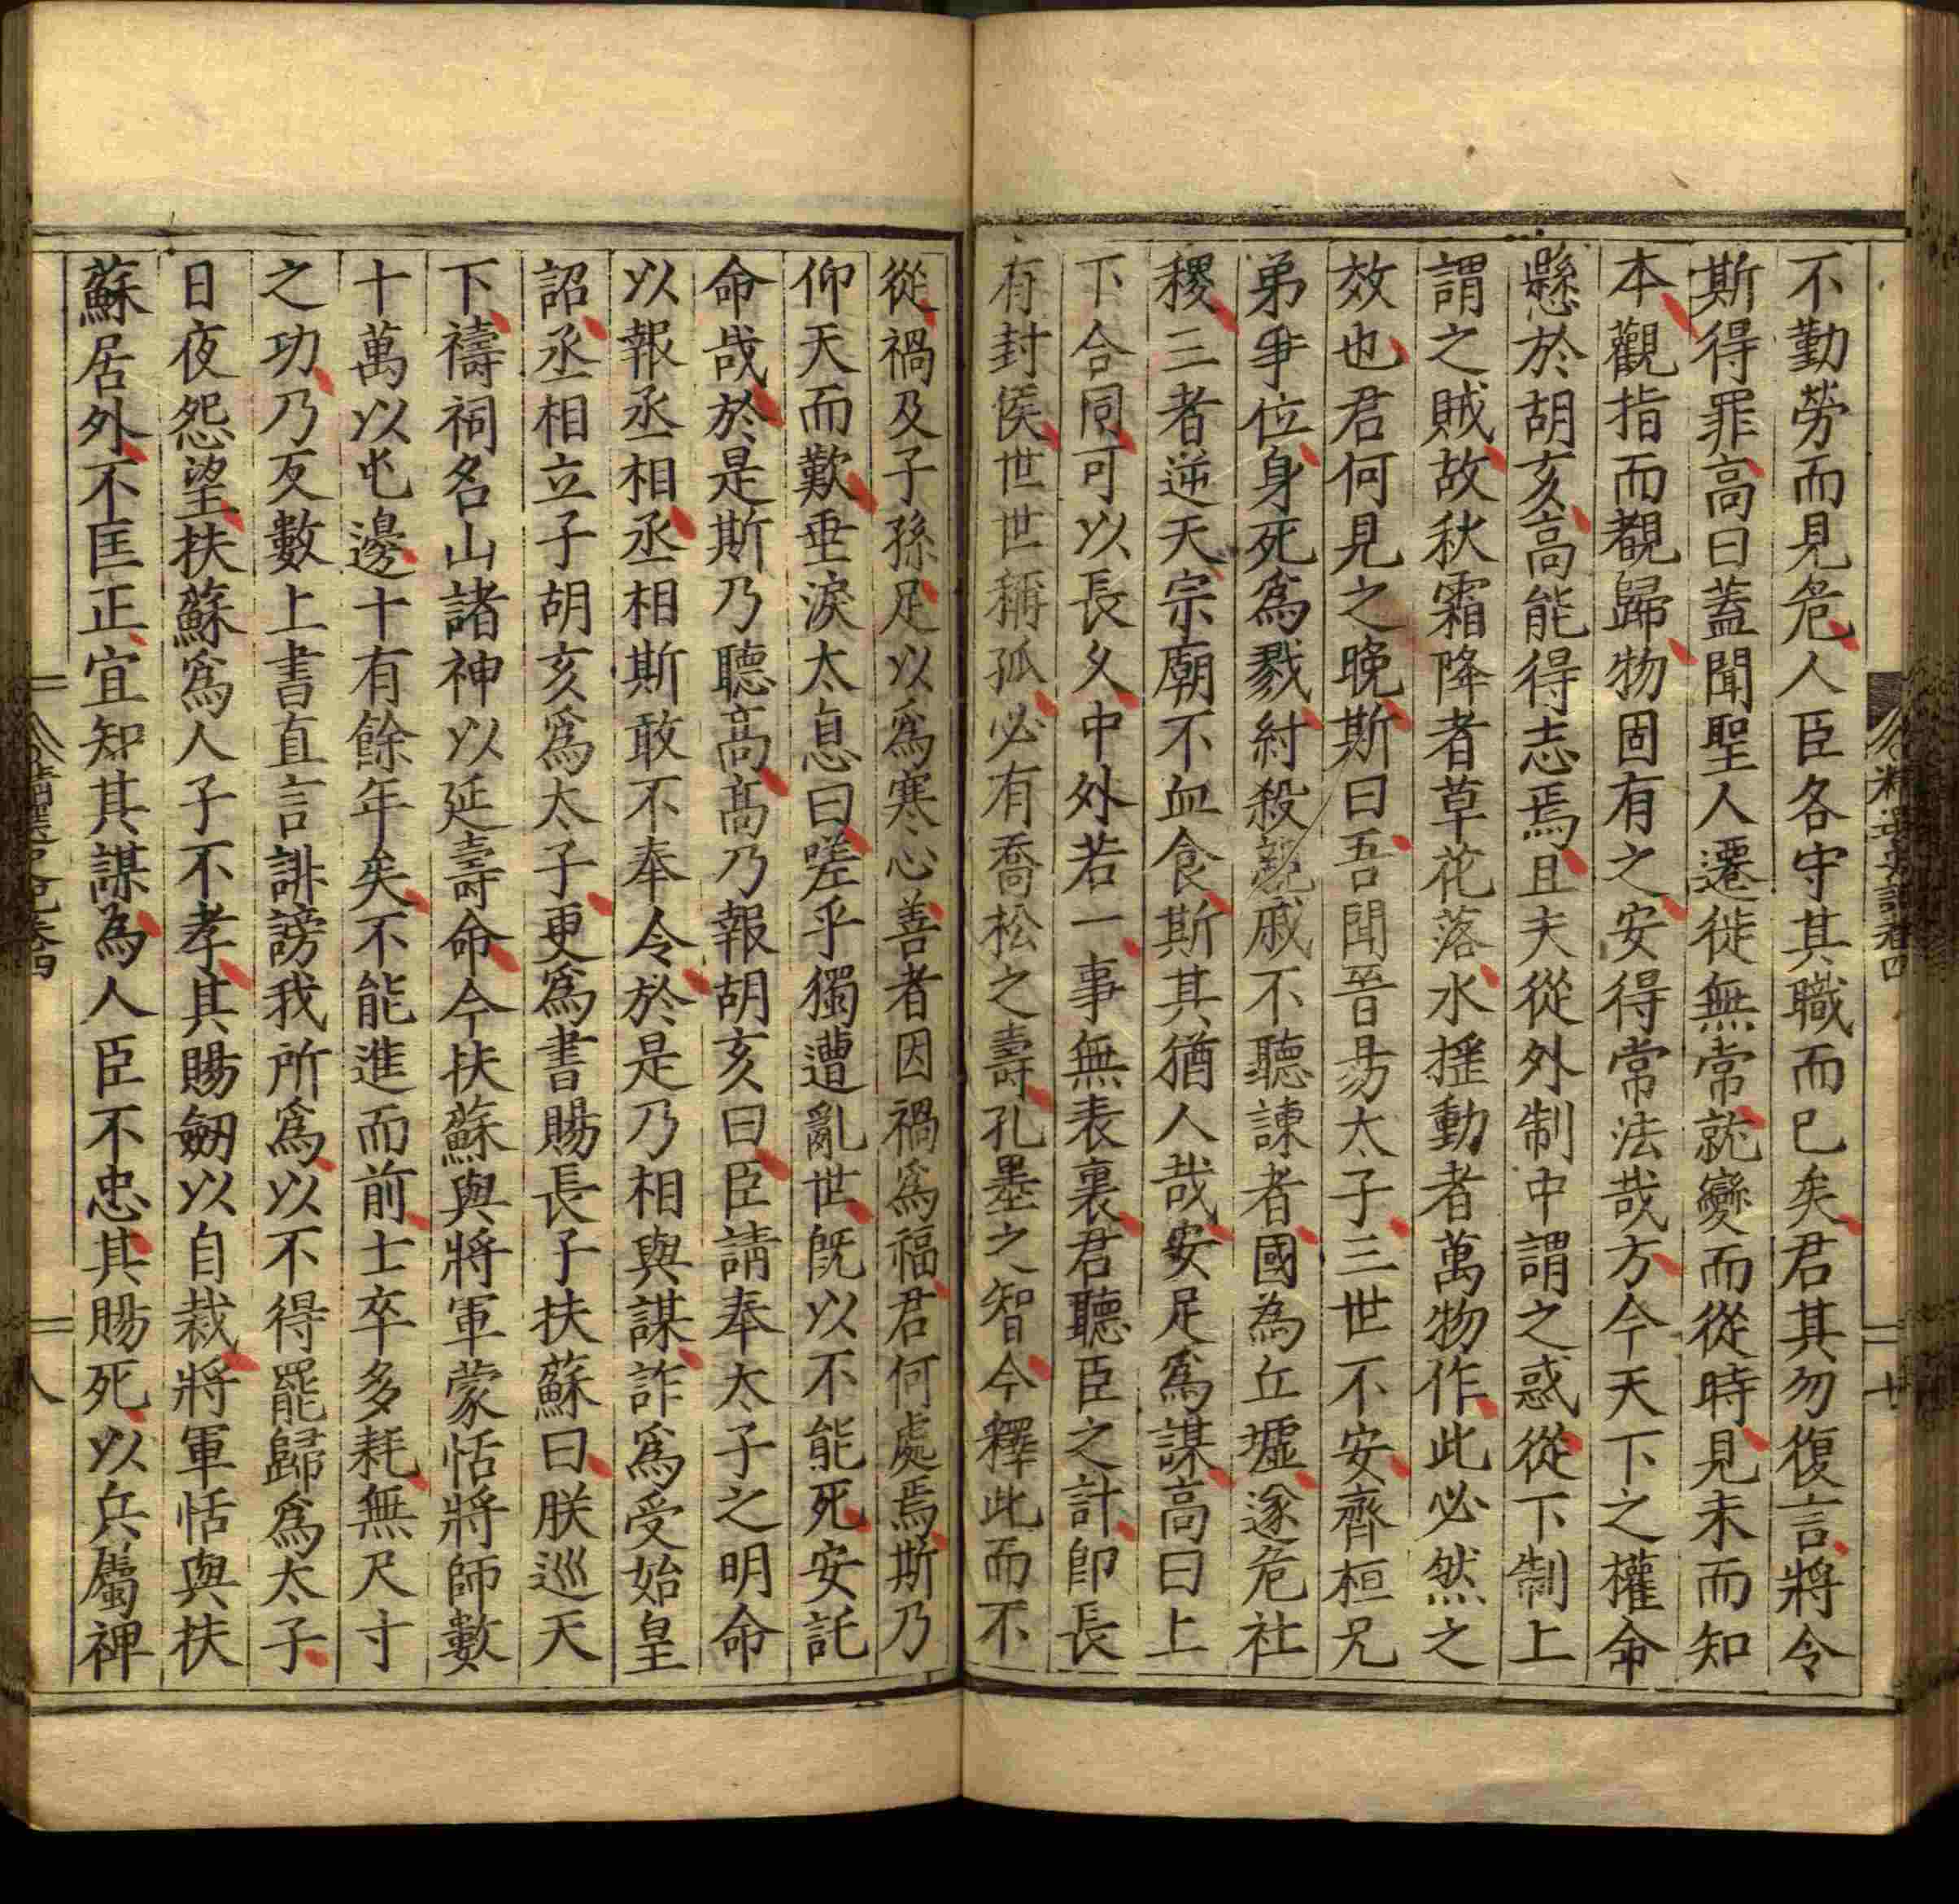 不勤勞而見危人臣各守其職而已矣君其勿復言將令
斯得罪高曰蓋聞聖人遷徙無常就變而從時見末而知
本觀指而覩歸物固有之安得常法哉方今天下之權命
懸於胡亥高能得志焉且夫從外制中謂之惑從下制上
謂之賊故秋霜降者草花落水揺動者萬物作此必然之
效也君何見之晚斯曰吾聞晉昜太子三世不安齊桓兄
弟爭位身死爲戮紂殺親戚不聽諫者國為丘墟遂危社
稷三者逆天宗廟不血食斯其猶人哉安足爲謀高曰上
下合同可以長久中外若一事無表裏君聽臣之計卽長
有封侯世世稱孤必有喬松之壽孔墨之智今釋此而不
從禍及子孫足以爲寒心善者因禍爲福君何處焉斯乃
仰天而歎垂淚太息曰嗟乎獨遭亂世旣以不能死安託
命哉於是斯乃聽高高乃報胡亥曰臣請奉太子之明命
以報丞相丞相斯敢不奉令於是乃相與謀詐爲受始皇
詔丞相立子胡亥爲太子更爲書賜長子扶蘇曰朕巡天
下禱祠名山諸神以延壽命今扶蘇與將軍蒙恬將師數
十萬以屯邊十有餘年矣不能進而前士卒多耗無尺寸
之功乃反數上書直言誹謗我所爲以不得罷歸爲太子
日夜怨望扶蘇爲人子不孝其賜劒以自裁將軍恬與扶
蘇居外不匡正宜知其謀為人臣不忠其賜死以兵屬裨